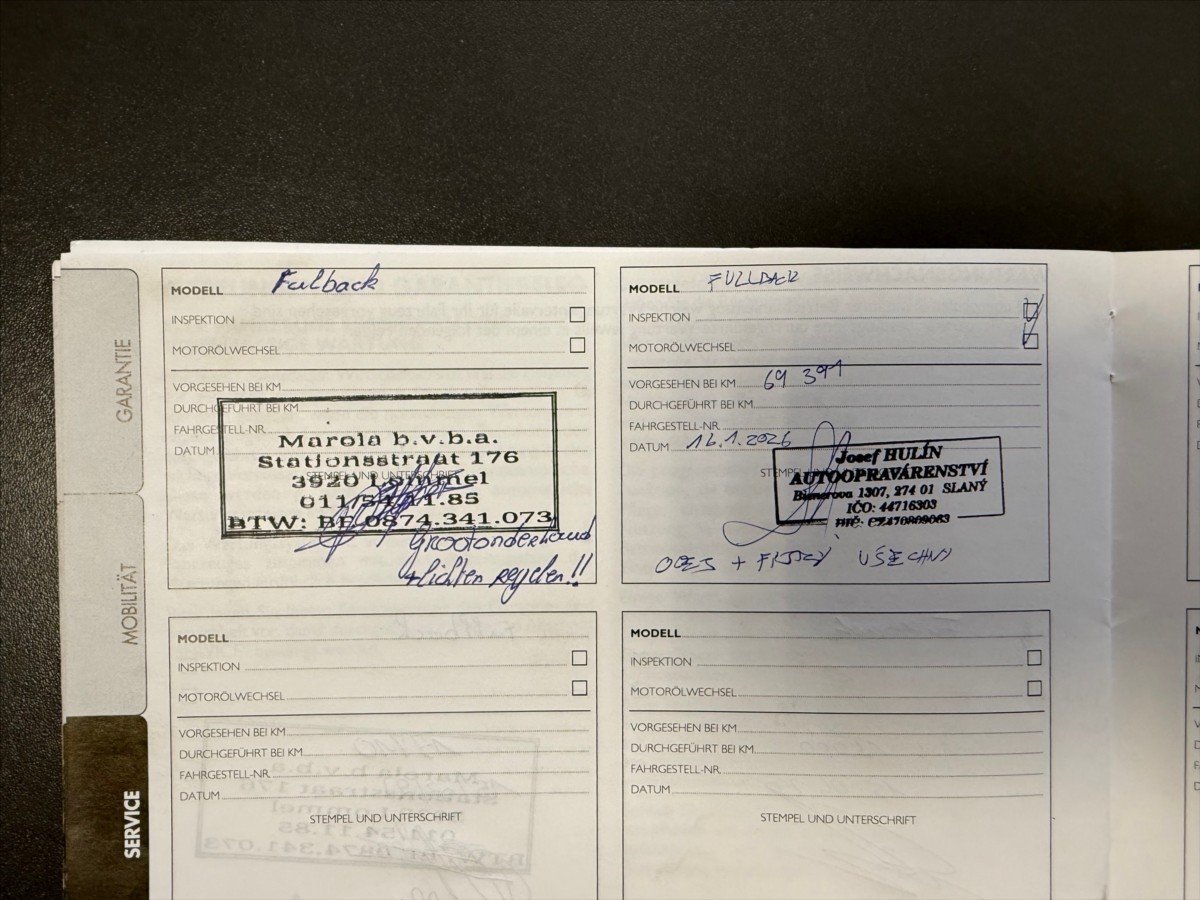 GARANTIE
MOBILITÄT
SERVICE
MODELL Fulback
INSPEKTION
MOTORÖLWECHSEL
VORGESEHEN BEI KM
DURCHGEFÜHRT BEI KM
FAHRGESTELL-NR.
DATUM
STEMPEL UND UNTERSCHRIFT
Marola b.v.b.a.
Stationsstraat 176
3920 Lommel
011/54.11.85
BTW: BE 0874.341.073
Grootonderhoud
+lichten regelen!!
MODELL FULLBACK
INSPEKTION
MOTORÖLWECHSEL
VORGESEHEN BEI KM 69 391
DURCHGEFÜHRT BEI KM
FAHRGESTELL-NR.
DATUM 16.1.2026
STEMPEL UND
Josef HULÍN
AUTOOPRAVÁRENSTVÍ
1307, 274 01 SLANÝ
IČO: 44716303
DIČ: CZ470809063
+ VŠECHNY
MODELL
INSPEKTION
MOTORÖLWECHSEL
VORGESEHEN BEI KM
DURCHGEFÜHRT BEI KM
FAHRGESTELL-NR.
DATUM
STEMPEL UND UNTERSCHRIFT
MODELL
INSPEKTION
MOTORÖLWECHSEL
VORGESEHEN BEI KM
DURCHGEFÜHRT BEI KM
FAHRGESTELL-NR.
DATUM
STEMPEL UND UNTERSCHRIFT